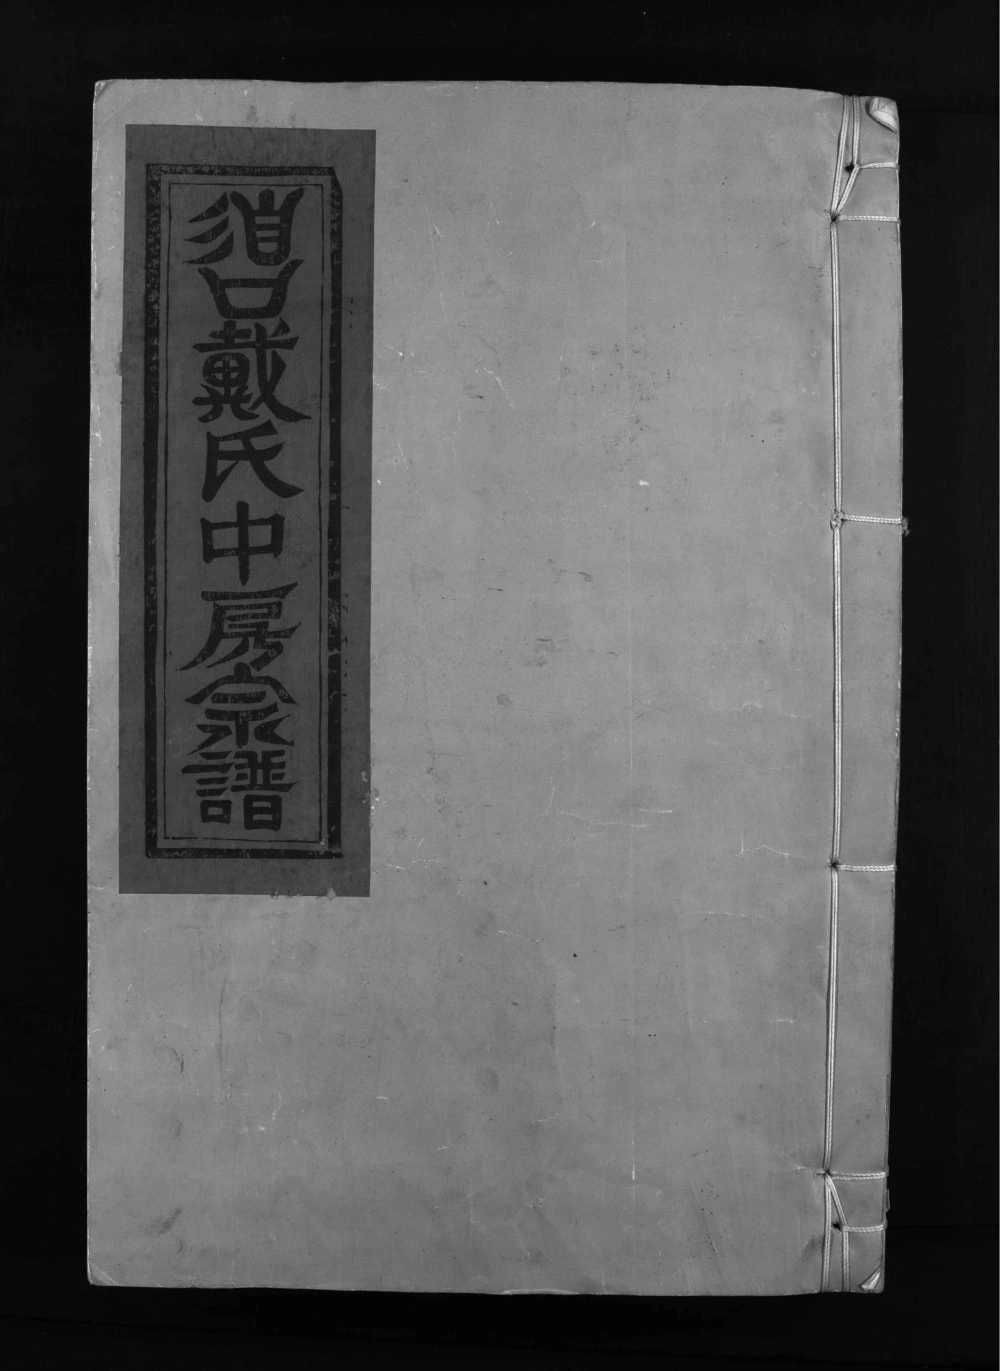 口戴氏中房宗譜